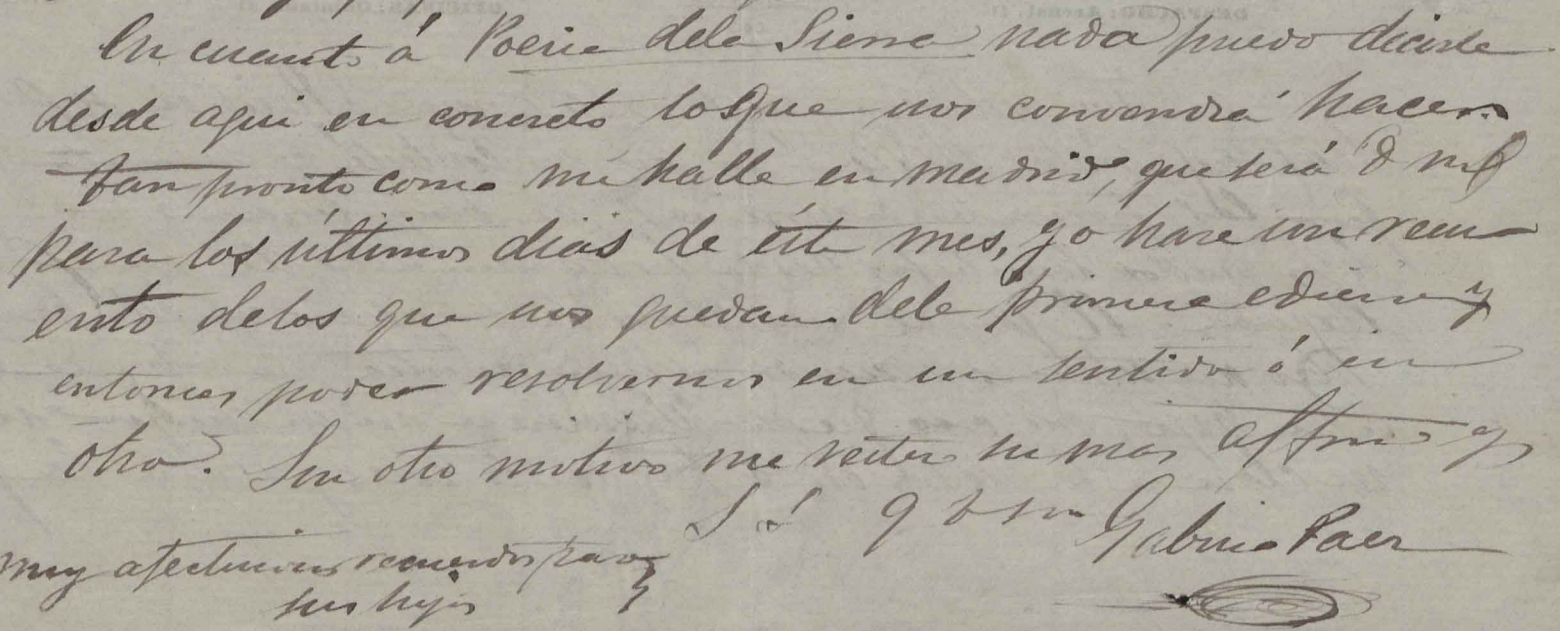 En cuanto á Poesia dela Sierra nada puedo decirle
desde aqui en concreto losque nos convendrá hacer.
tan pronto como me halle en madrid, que será D m
para los últimos dias de éste mes, yo hare un recu
ento delos que nos quedan dela primera edicion y
entonces poder resolvernos en un sentido ó en
otro. Sin otro motivo me reitero su mas affmo y
S S q b s m Gabino Paez
muy afectuosos recuerdos para
sus hijos